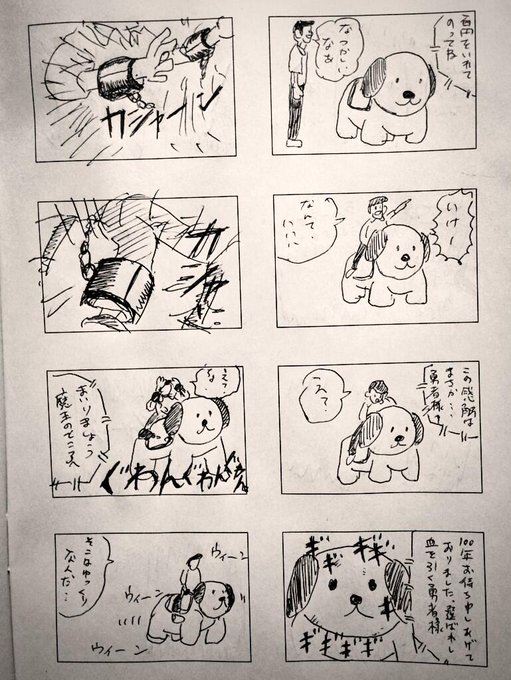 百円をいれて
のってね
なつかしい
なぁ
いけー
なんて…
ハハハ
この感触は
まさか…
勇者様?
えっ?
100年お待ち申しあげて
おりました、選ばれし
血を引く勇者様
ギギギ
ギギギギギ
ガシャーン
ガシャン
えっ
な
まいりましょう
魔王のところへ
ぐわんぐわん
ウィーン
ウィーン
ウィーン
そこはゆっくり
なんだ…